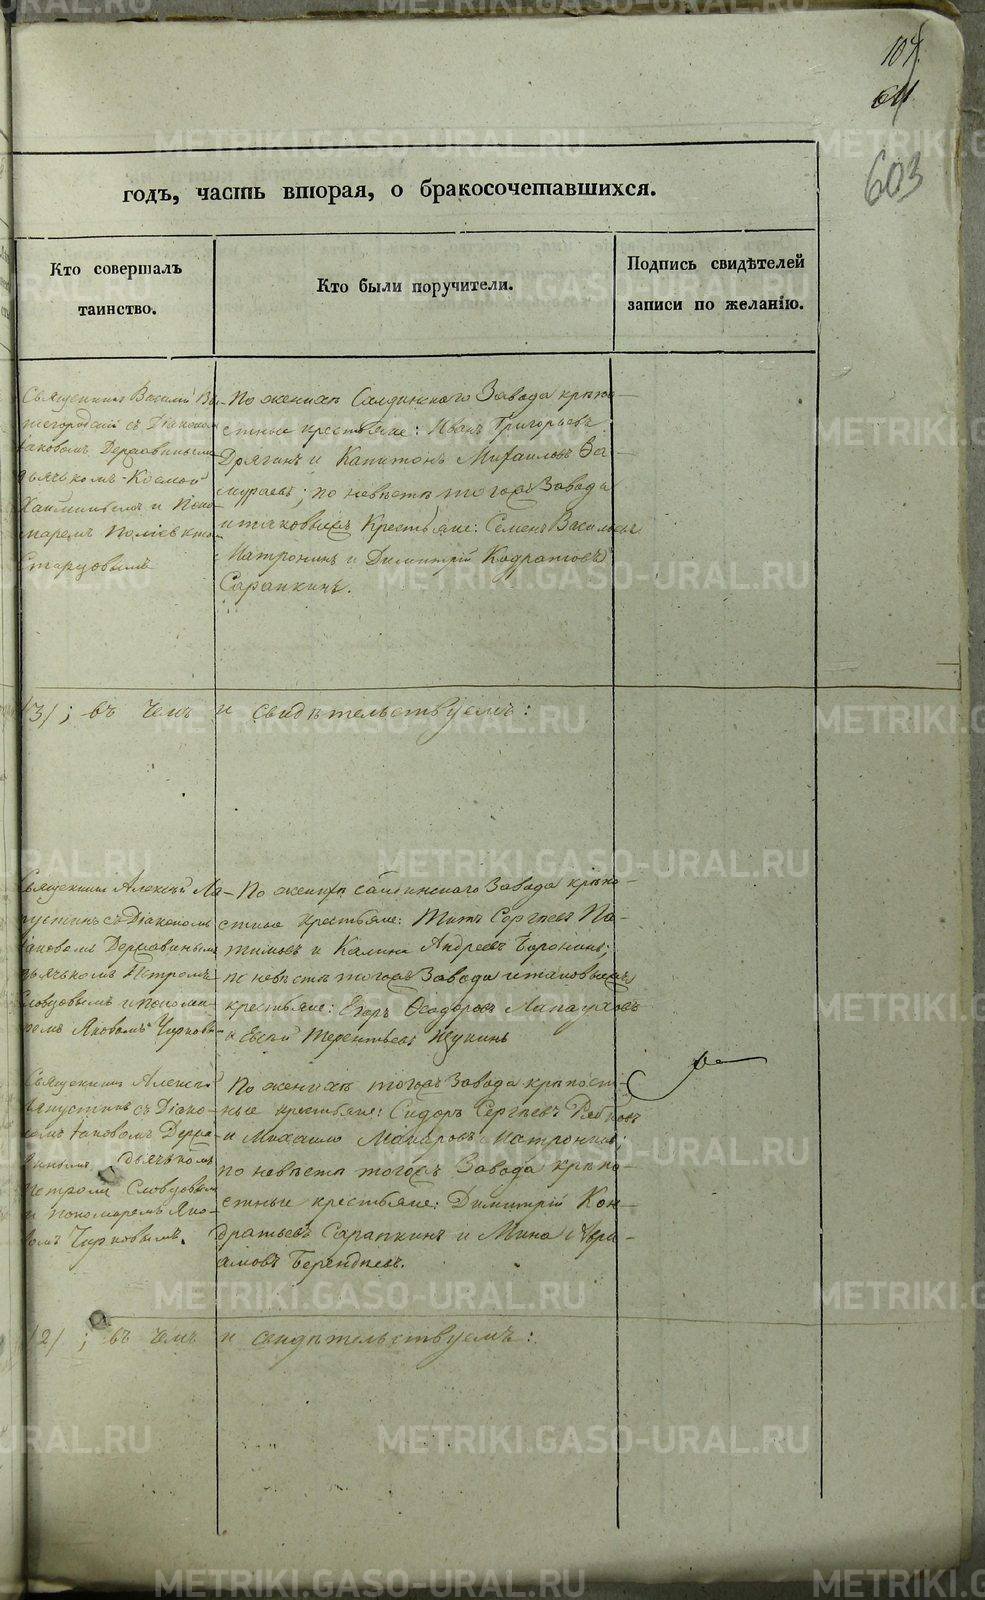 603
годъ, часть вторая, о бракосочетавшихся.
Кто совершалъ
таинство.
Кто были поручители.
Подпись свидѣтелей
записи по желанію.
Священникъ Василій
съ Діакономъ
Іаковомъ Державинымъ
дьячькомъ Космою
и Поно-
маремъ Поліевкто
Старцовымъ
По женихѣ Салдинскаго Завода крѣпо-
стные крестьяне: Иванъ Григорьевъ
Дрягинъ и Капитонъ Михаиловъ За-
мураевъ; по невѣстѣ тогожъ Завода
и таковыежъ Крестьяне: Семенъ Васильевъ
Патронинъ и Димитрій Кодратовъ
Сарапкинъ.
/3/; въ чемъ и свидѣтельствуемъ:
Священникъ Алексѣй Ла-
пустинъ съ Діакономъ
Іаковомъ Державинымъ
дьячькомъ Петромъ
Словцовымъ и понома-
ремъ Яковомъ Чирковы
По женихѣ Салдинскаго Завода крѣпо-
стные крестьяне: Титъ Сергѣевъ Па-
тимовъ и Калина Андреевъ Воронинъ;
по невѣстѣ тогожъ Завода и таковыежъ
крестьяне: Егоръ Ѳеодоровъ
и Евсѣй Терентьевъ
Священникъ Алексѣй
Лапустинъ съ Діако-
номъ Іаковомъ Держа-
винымъ дьячькомъ
Петромъ Словцовымъ
и пономаремъ Яко-
вомъ Чирковымъ.
По женихѣ тогожъ Завода крѣпост-
ные крестьяне: Сидоръ Сергѣевъ
и Михаило Макаровъ Патронинъ;
по невѣстѣ тогожъ Завода крѣпо-
стные крестьяне: Димитрій Кон-
дратьевъ Сарапкинъ и Мина Авра-
амовъ Берендѣевъ.
/2/; въ чемъ и свидѣтельствуемъ:
METRIKI.GASO-URAL.RU